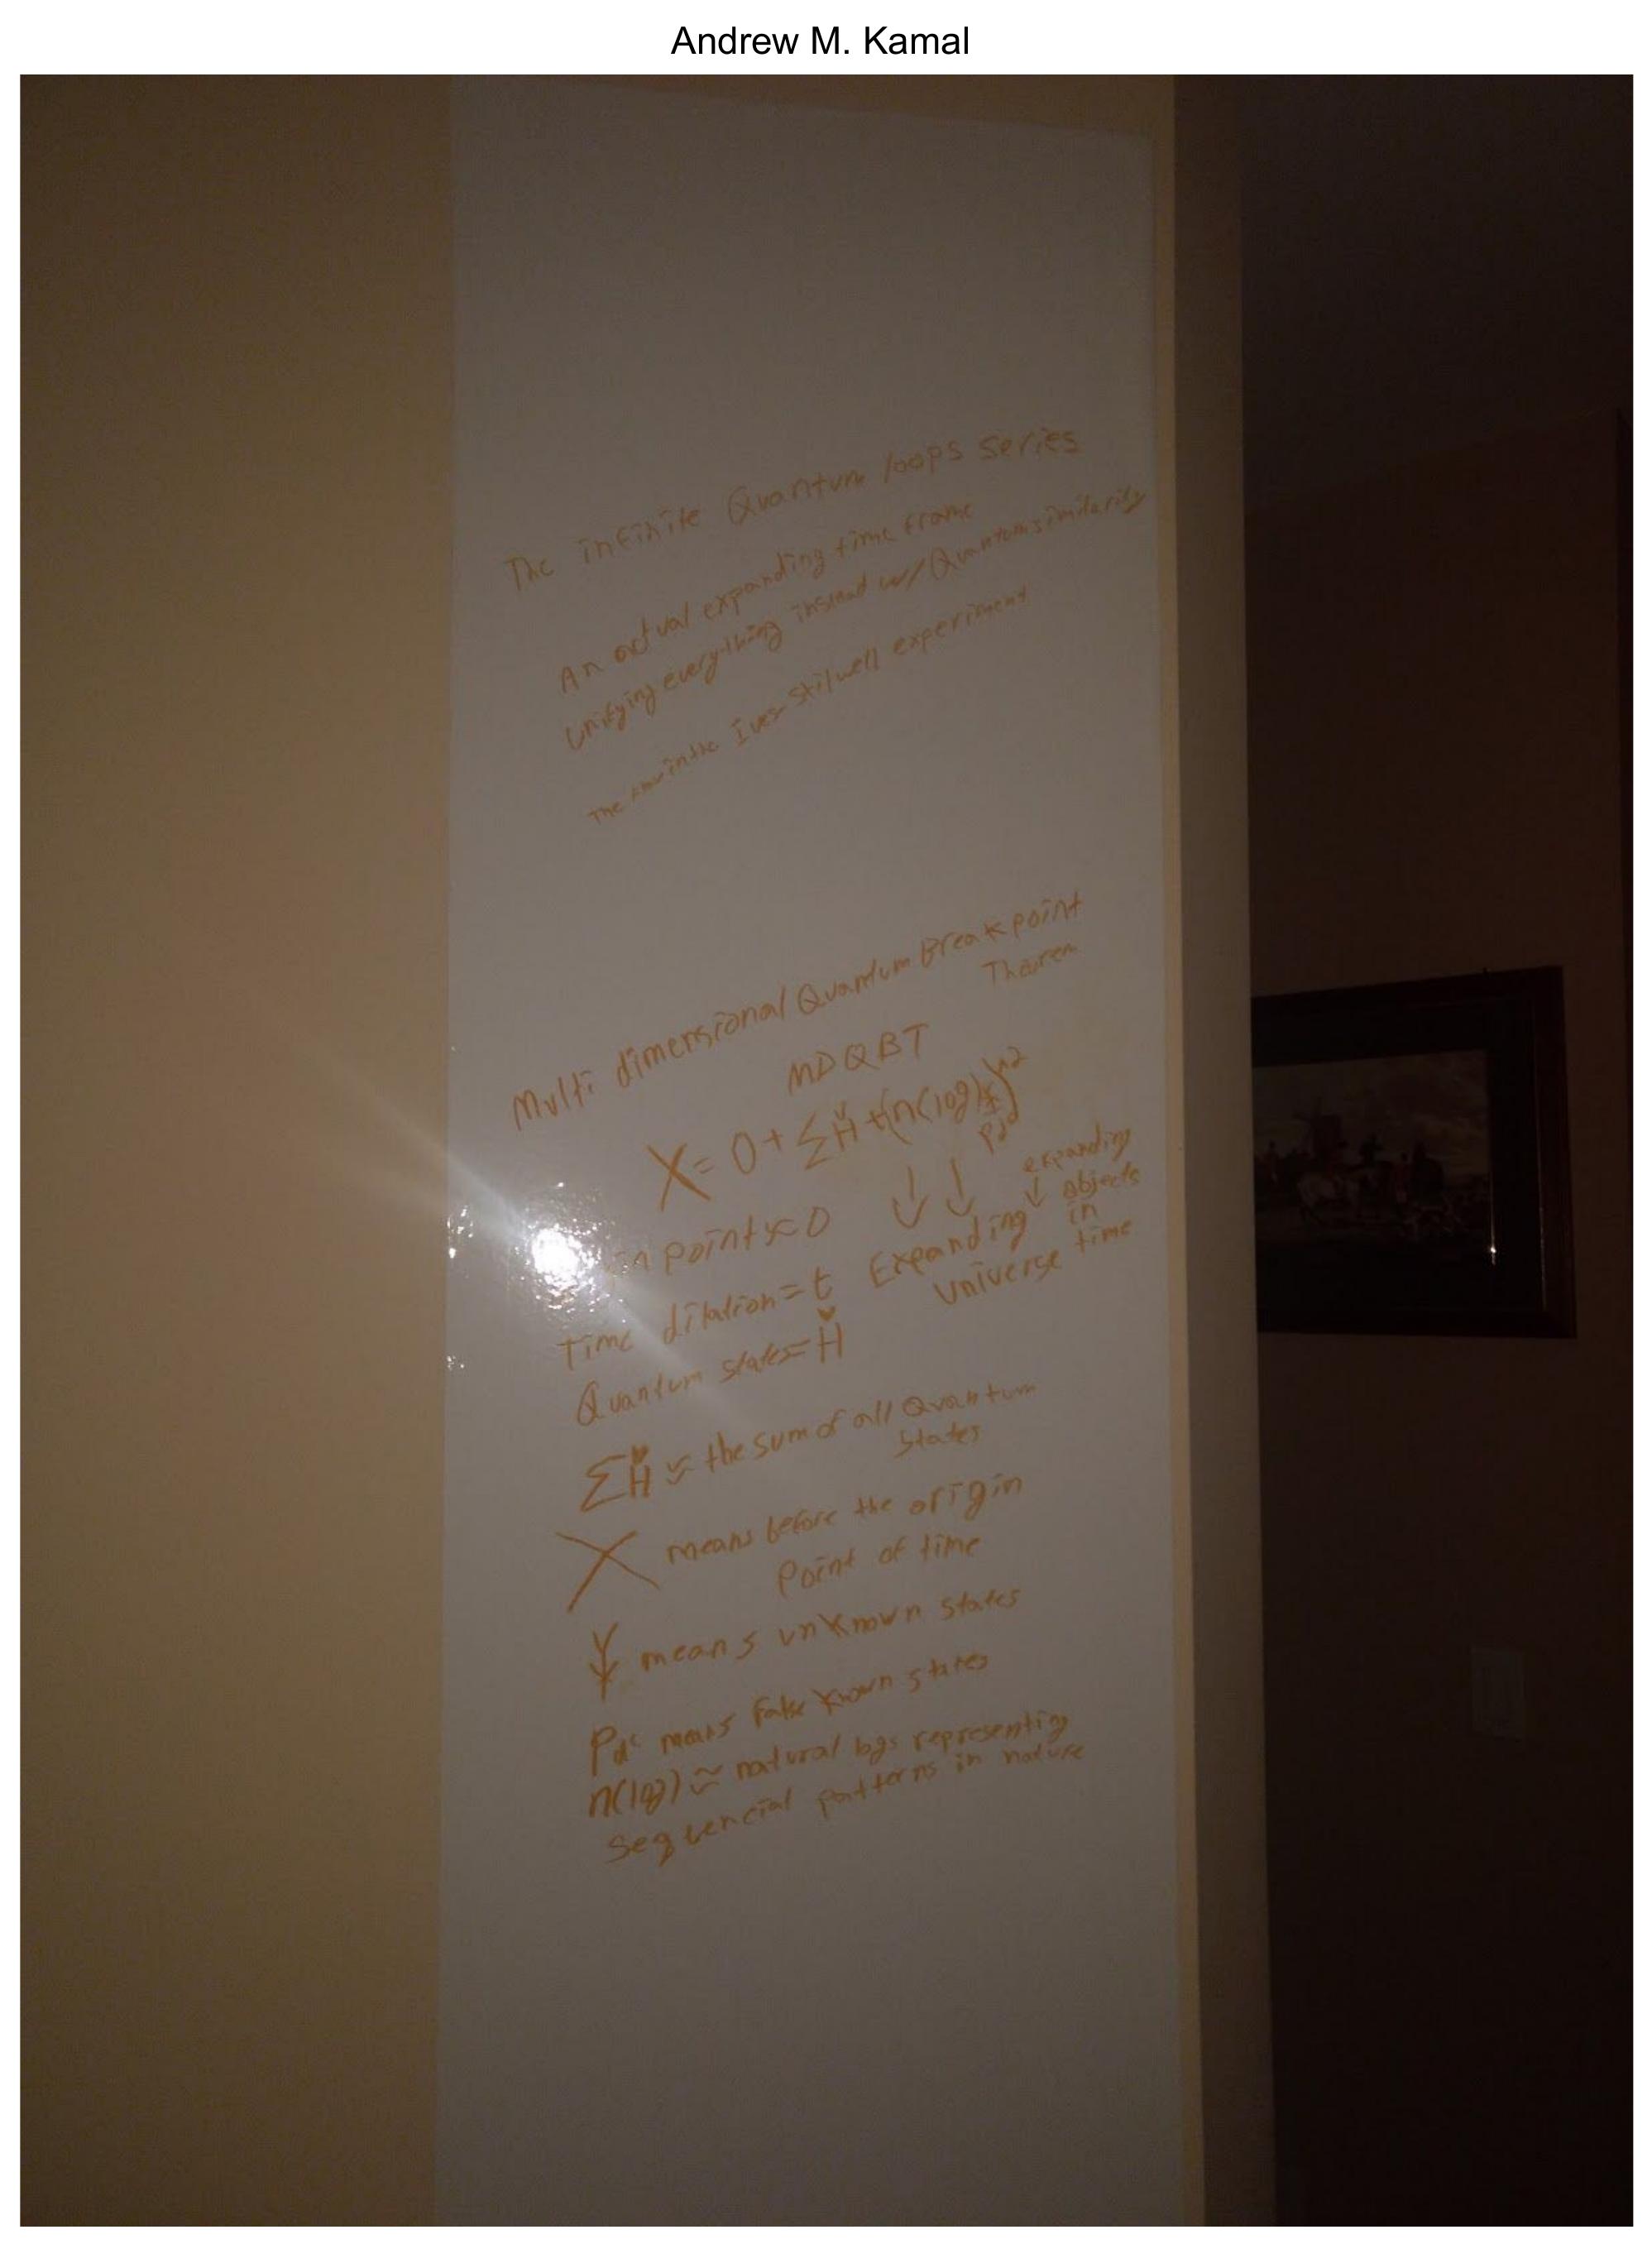 Andrew M. Kamal
The infinite Quantum loops series
An actual expanding time frame
Unifying everything instead w/ Quantum similarity
The Ives Stilwell experiment
Multi dimensional Quantum Breakpoint
Theorem
MDQBT
X = 0 + ΣȞ + (n(log)
Pd
in point ≤ 0
expanding
objects
in
time
Time dilation = t Expanding
Universe
Quantum states = Ȟ
ΣȞ ≈ the sum of all Quantum
States
X means before the origin
Point of time
¥ means unknown states
Pdc means false known states
n(log) ≈ natural logs representing
sequencial patterns in nature